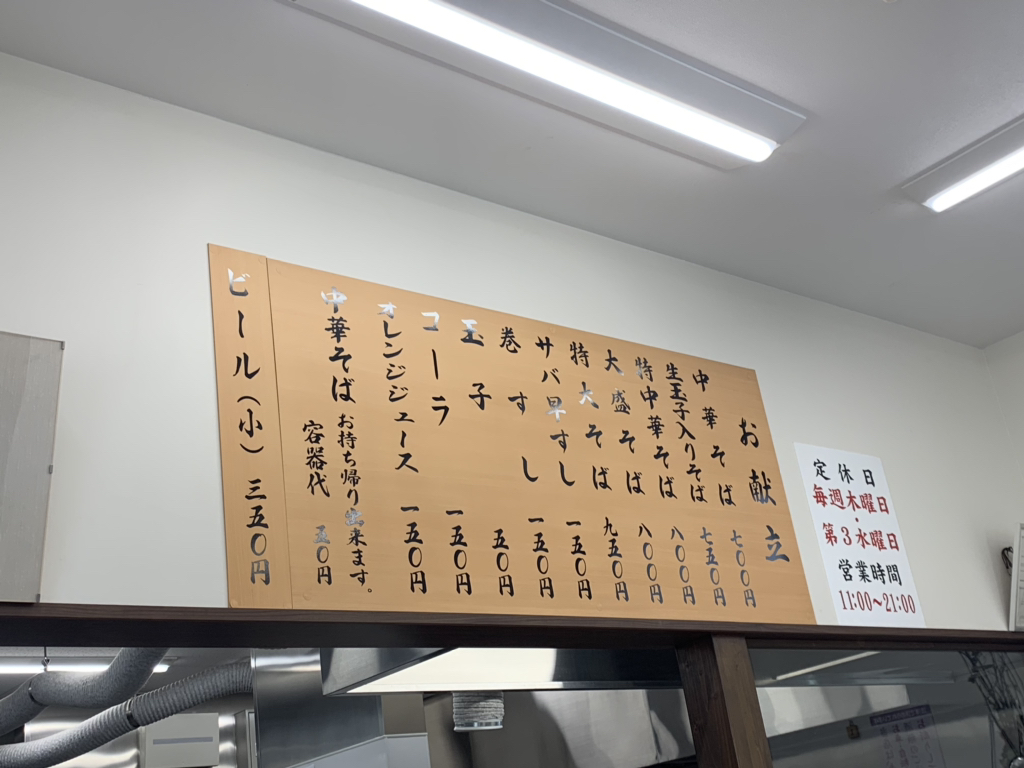 お献立
中華そば 七〇〇円
生玉子入りそば 七五〇円
特中華そば 八〇〇円
大盛そば 八〇〇円
特大そば 九五〇円
サバ早すし 一五〇円
巻すし 一五〇円
玉子 五〇円
コーラ 一五〇円
オレンジジュース 一五〇円
中華そばお持ち帰り出来ます。
容器代 五〇円
ビール(小) 三五〇円
定休日
毎週木曜日
・
第3水曜日
営業時間
11:00~21:00